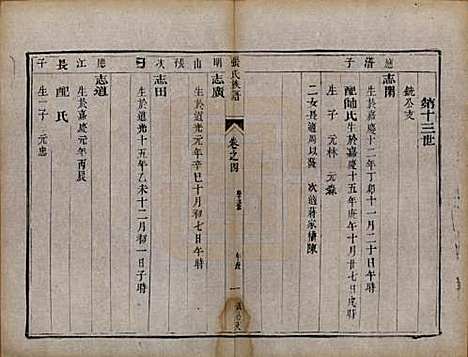 第十三世
銃公支
應清子
志開
生於嘉慶十二年丁卯十一月二十日未時
配師氏生於嘉慶十五年庚午十月廿七日戌時
生子二 元林 元森
二女長適周以 次適蔣家 陳
張氏族譜
卷之四
明山
志廣
生於道光元年辛巳十月初七日午時
次侯子
志田
生於道光十五年乙未十二月初一日子時
應江長子
志道
生於嘉慶元年丙辰
配氏
生一子 元忠